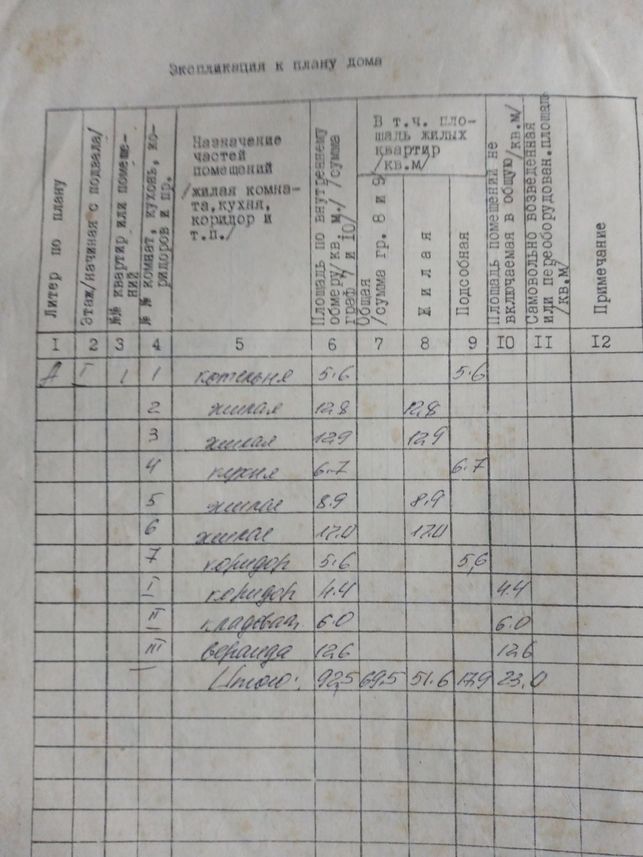 Экспликация к плану дома
Литер по плану
Этаж/начиная с подвала/
№№ квартир или помеще-
ний
№ № комнат, кухонь, ко-
ридоров и пр.
Назначение
частей
помещений
/жилая комна-
та,кухня,
коридор и
т.п./
Площадь по внутреннему
обмеру/кв м./ /сумма
граф 7 и 10/
В т.ч. пло-
щадь жилых
квартир
/кв.м/
Общая
/сумма гр. 8 и 9/
Жилая
Подсобная
Площадь помещений не
включаемая в общую/кв.м/
Самовольно возведенная
или переоборудован.площадь
/кв.м/
Примечание
I 2 3 4 5 6 7 8 9 10 II I2
А I 1 1 котельня 5.6 5.6
2 жилая 12,8 12,8
3 жилая 12,9 12,9
4 кухня 6.7 6.7
5 жилая 8.9 8.9
6 жилая 17.0 17.0
7 коридор 5.6 5,6
I коридор 4.4 4.4
II кладовая 6.0 6.0
III веранда 12,6 12,6
Итого: 92,5 69.5 51.6 17,9 23.0